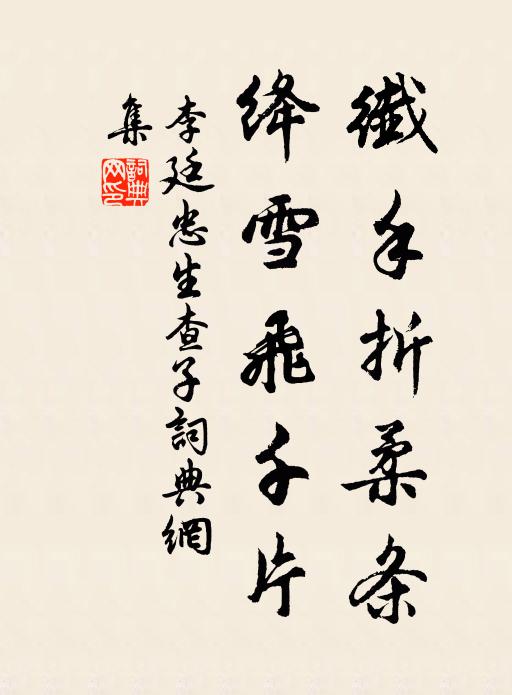 纖手折柔条
绛雪飛千片
李廷忠生查子詞典網
集
詞典網印